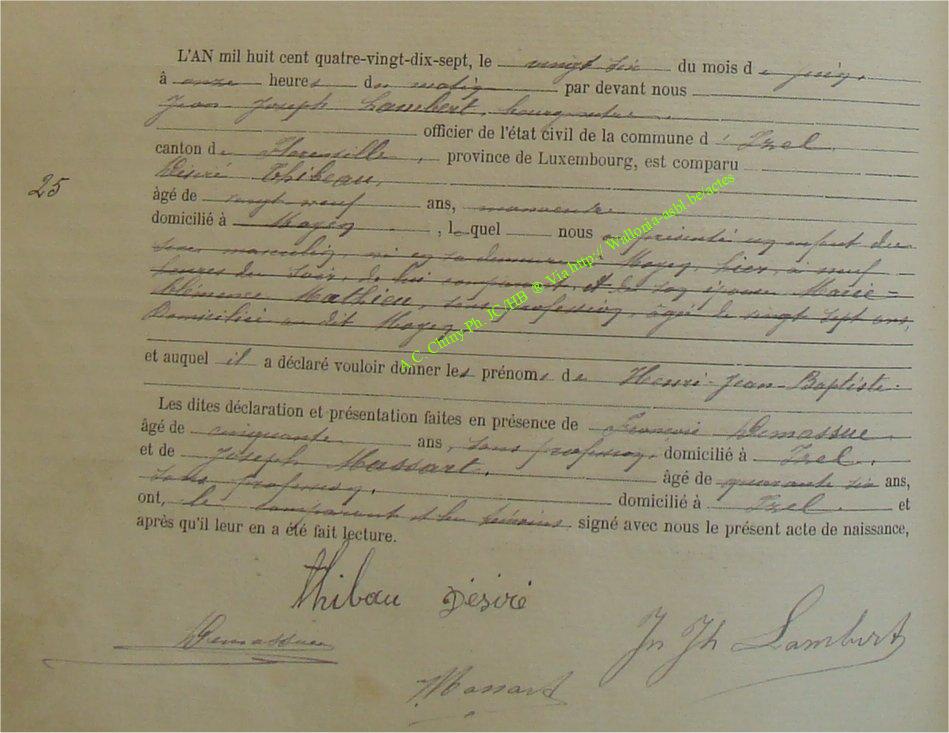 L'AN mil huit cent quatre-vingt-dix-sept, le vingt six du mois de juin,
à onze heures du matin par devant nous
Jean Joseph Lambert, bourgmestre
officier de l'état civil de la commune d' Izel
canton de Florenville, province de Luxembourg, est comparu
Désiré Thibeau,
25
âgé de vingt neuf ans, manoeuvre
domicilié à Moyen, lequel nous a présenté un enfant du
sexe masculin, né en sa demeure à Moyen, hier, à neuf
heures du soir, de lui comparant, et de son épouse Marie-
Clémence Mathieu, sans profession, âgée de vingt sept ans,
Domiciliée au dit Moyen
A.C. Chiny-Ph. JC /HB ® Via http:// Wallonia-asbl.be/actes
et auquel il a déclaré vouloir donner les prénoms de Henri-Jean-Baptiste.
Les dites déclaration et présentation faites en présence de François Demassue
âgé de cinquante ans, sans profession, domicilié à Izel,
et de Joseph Massart, âgé de quarante six ans,
sans profession, domicilié à Izel et
ont, le comparant et les témoins signé avec nous le présent acte de naissance,
après qu'il leur en a été fait lecture.
Thibau Désiré
Demassue
Jn Jh Lambert
Massart